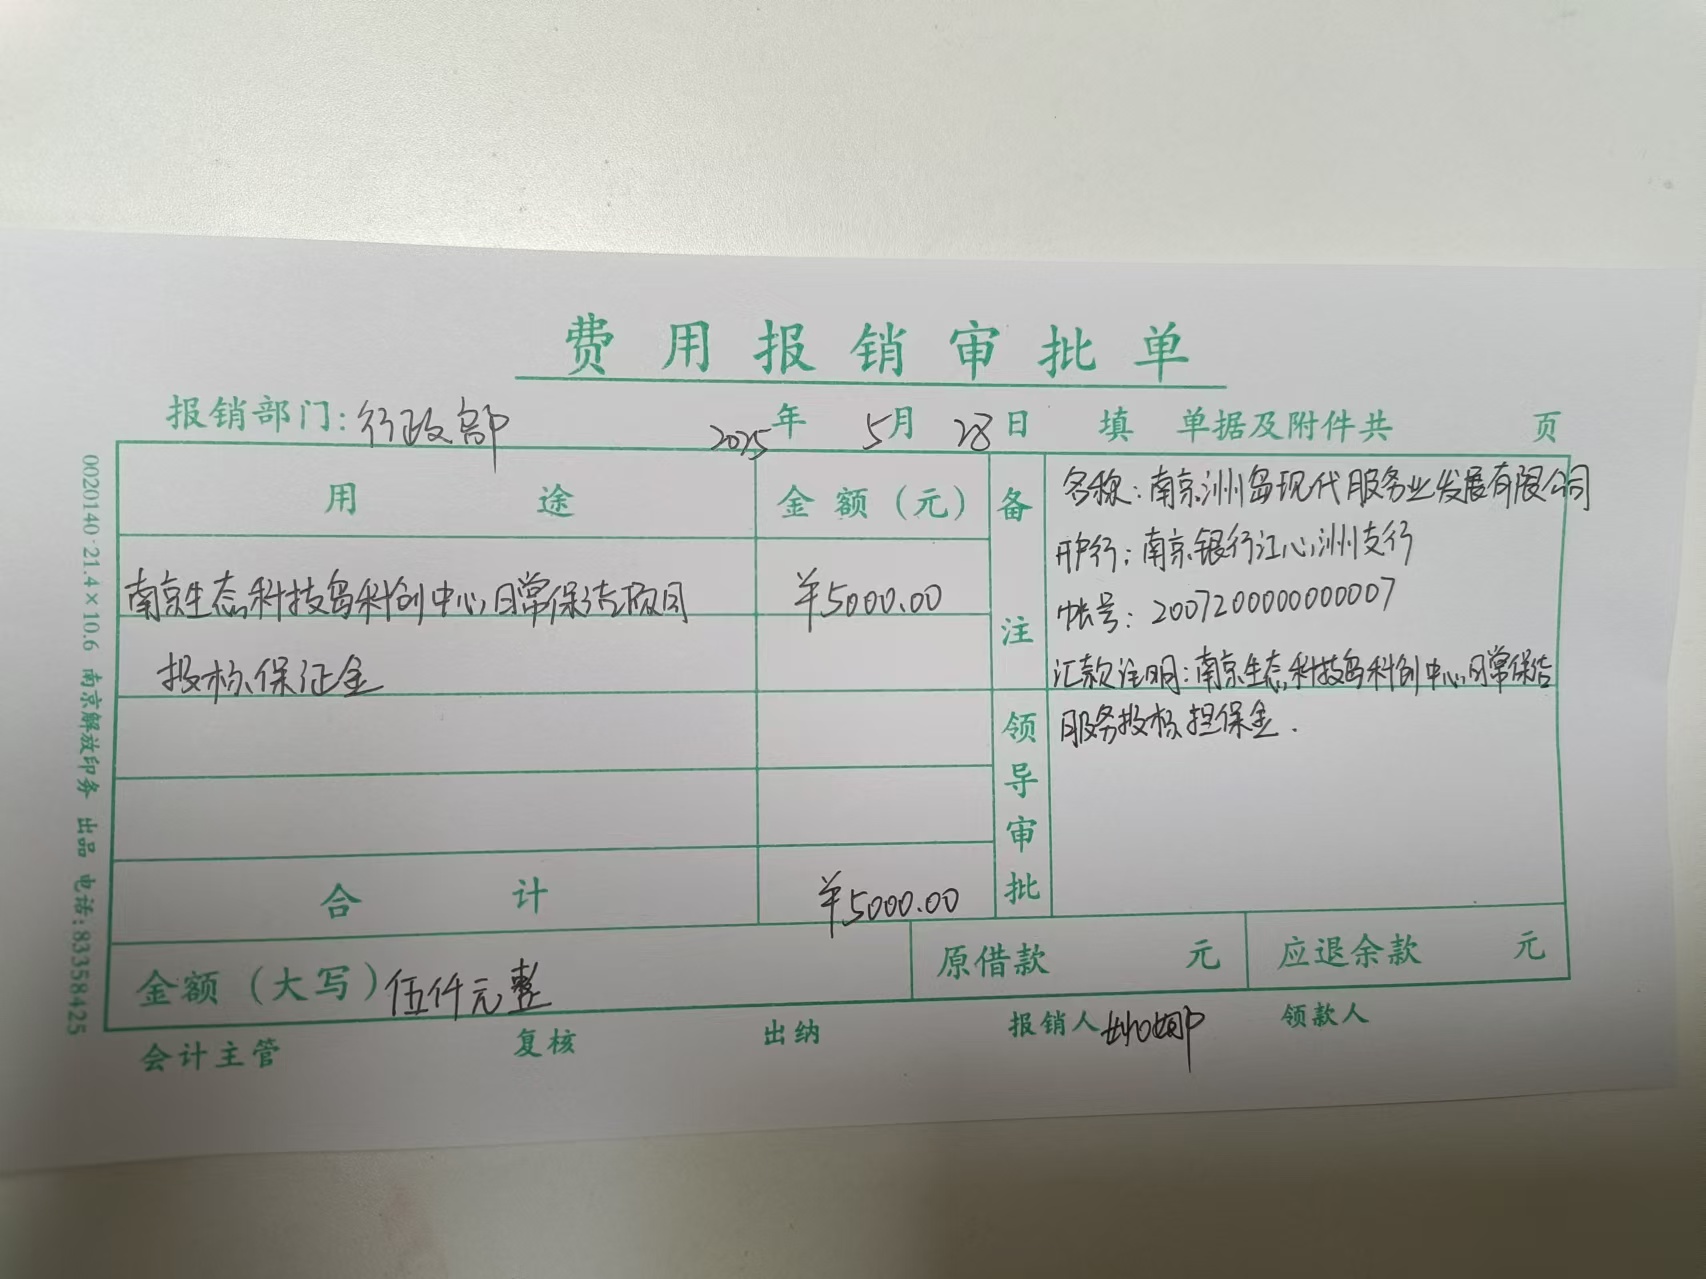 费用报销审批单
报销部门：行政部 2025年 5月 28日 填 单据及附件共 页
用途 金额（元） 备注
名称：南京洲岛现代服务业发展有限公司
开户行：南京银行江心洲支行
帐号：2007200000000007
汇款注明：南京生态科技岛科创中心日常保洁
服务投标担保金.
南京生态科技岛科创中心日常保洁项目 ¥5000.00
投标保证金
领导审批
合计 ¥5000.00
金额（大写）伍仟元整 原借款 元 应退余款 元
会计主管 复核 出纳 报销人 领款人
0020140·21.4×10.6 南京解放印务 出品 电话:83358425